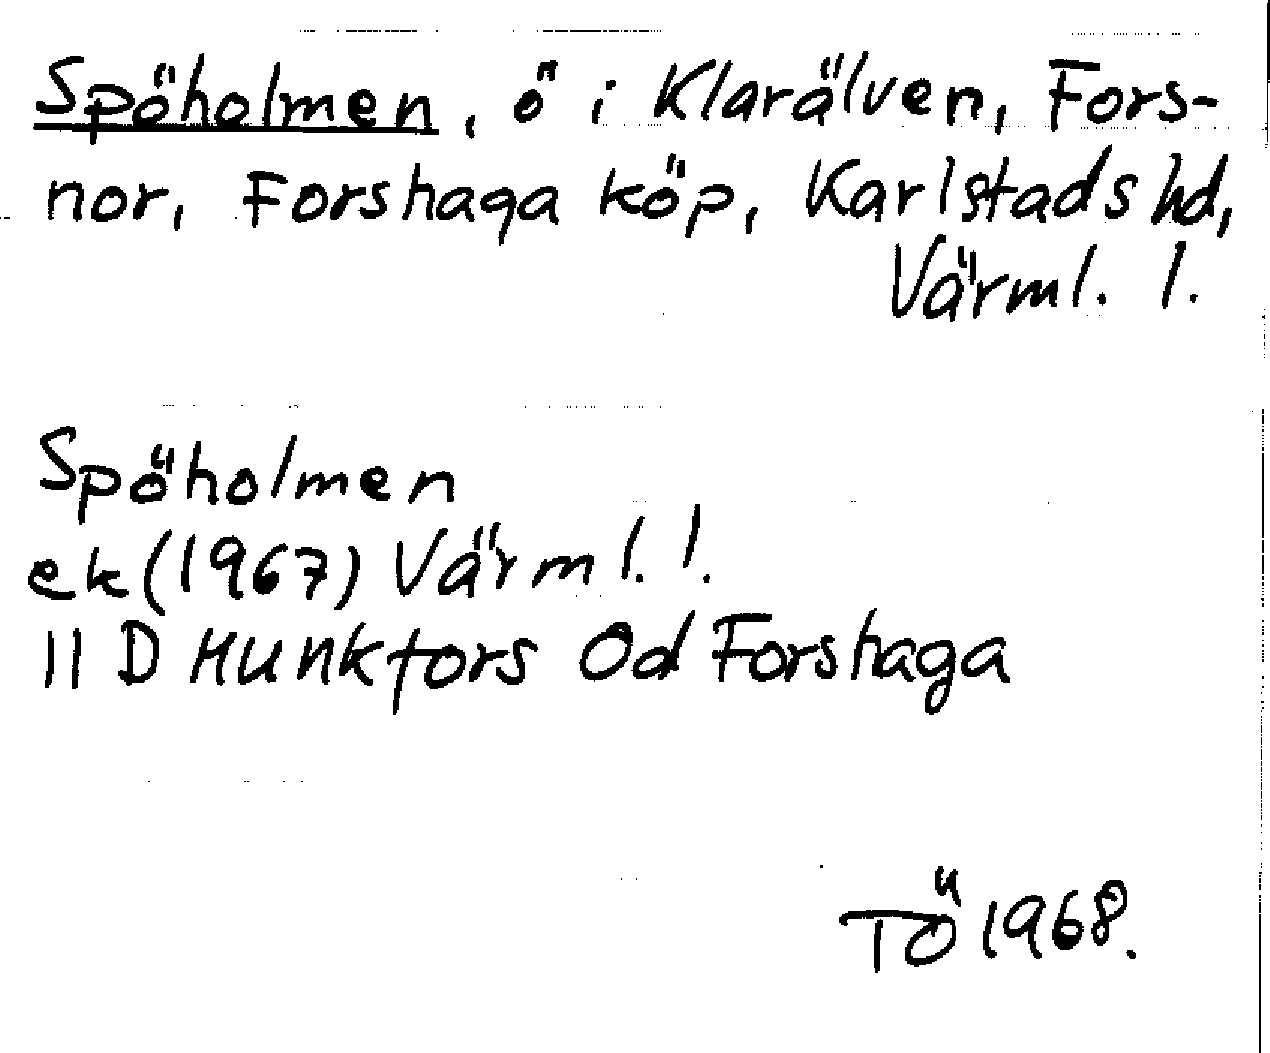 Spöholmen, ö i Klarälven, Fors-
nor, Forshaga köp, Karlstads hd,
Värml. l.
Spöholmen
ek (1967) Värml. l.
11 D Munkfors Od Forshaga
TÖ 1968.